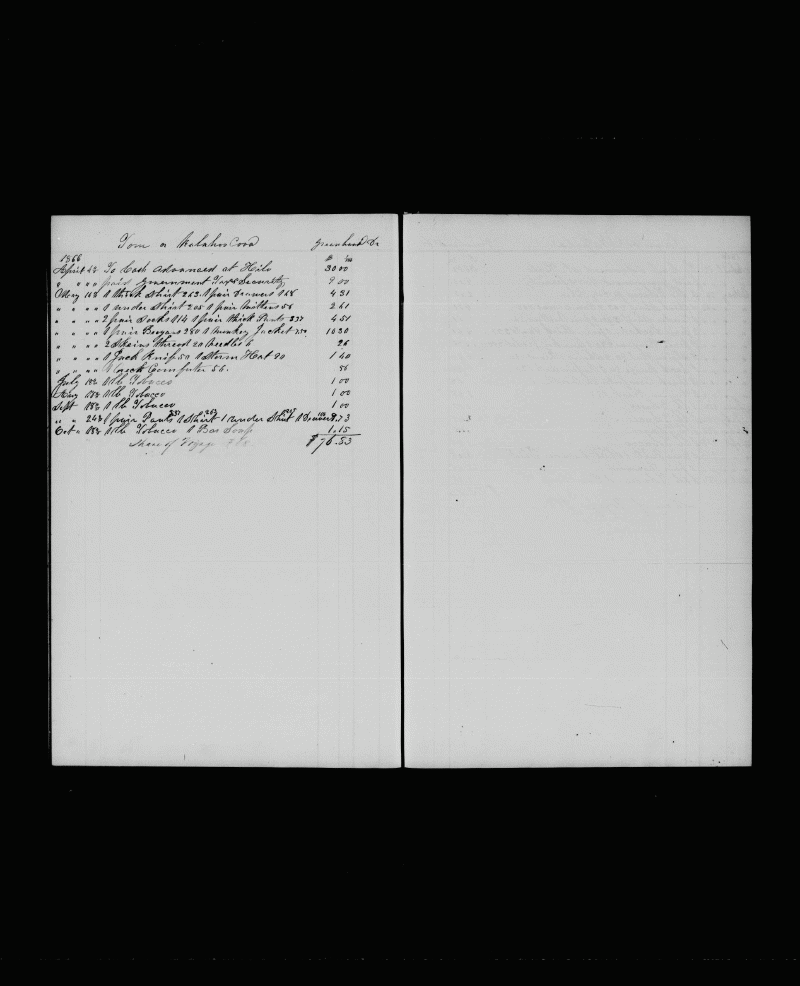 Tom a Greenhand Dr
1866 $ cts
April 23 To Cash Advanced at Hilo 30 00
" " " " paid Government Tax & Security 9 00
May 16th 1 thick Shirt 263 1 pair Drawers 168 4 31
" " " " 1 under Shirt 205 1 pair Mittens 56 2 61
" " " " 2 pair Socks 114 1 pair thick Pants 337 4 51
" " " " 1 pair Brogans 280 1 Munkey Jacket 750 10 30
" " " " 2 Skains Thread 20 Needles 6 26
" " " " 1 Jack Knif 50 1 Storm Hat 90 1 40
" " " " 1 neck Comforter 56 56
July 18th 1 lb Tobacco 1 00
Aug 18th 1 lb Tobacco 1 00
Sept 18th 1 lb Tobacco 1 00
" " 24th 1 pair Pants 1 Shirt 1 under Shirt 1 Drawers 8.73
Oct " 18th 1 lb Tobacco 1 Bar Soap 1.15
Share of Voyage $76.53